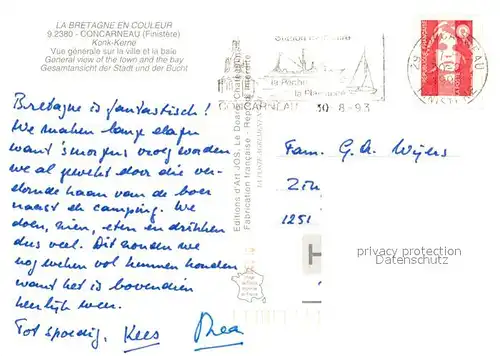 LA BRETAGNE EN COULEUR
9.2380 - CONCARNEAU (Finistère)
Konk-Kerne
Vue générale sur la ville et la baie
General view of the town and the bay
Gesamtansicht der Stadt und der Bucht
Bretagne is fantastisch!
We maken lange dagen
want 's morgens vroeg worden
we al gewekt door die ver-
domde haan van de boer
naast de camping. We
doen, zien, eten en drinken
dus veel. Dit zouden we
nog weken vol kunnen houden
want het is bovendien
heerlijk weer.
Tot spoedig, Kees Thea
Editions d'Art JOS, Le Doaré, Châteaulin
Fabrication française - Reprod. interdite
la Pêche
la Plaisance
CONCARNEAU 30-8-93
Fam. G.A. Wijers
1251
H
privacy protection
Datenschutz